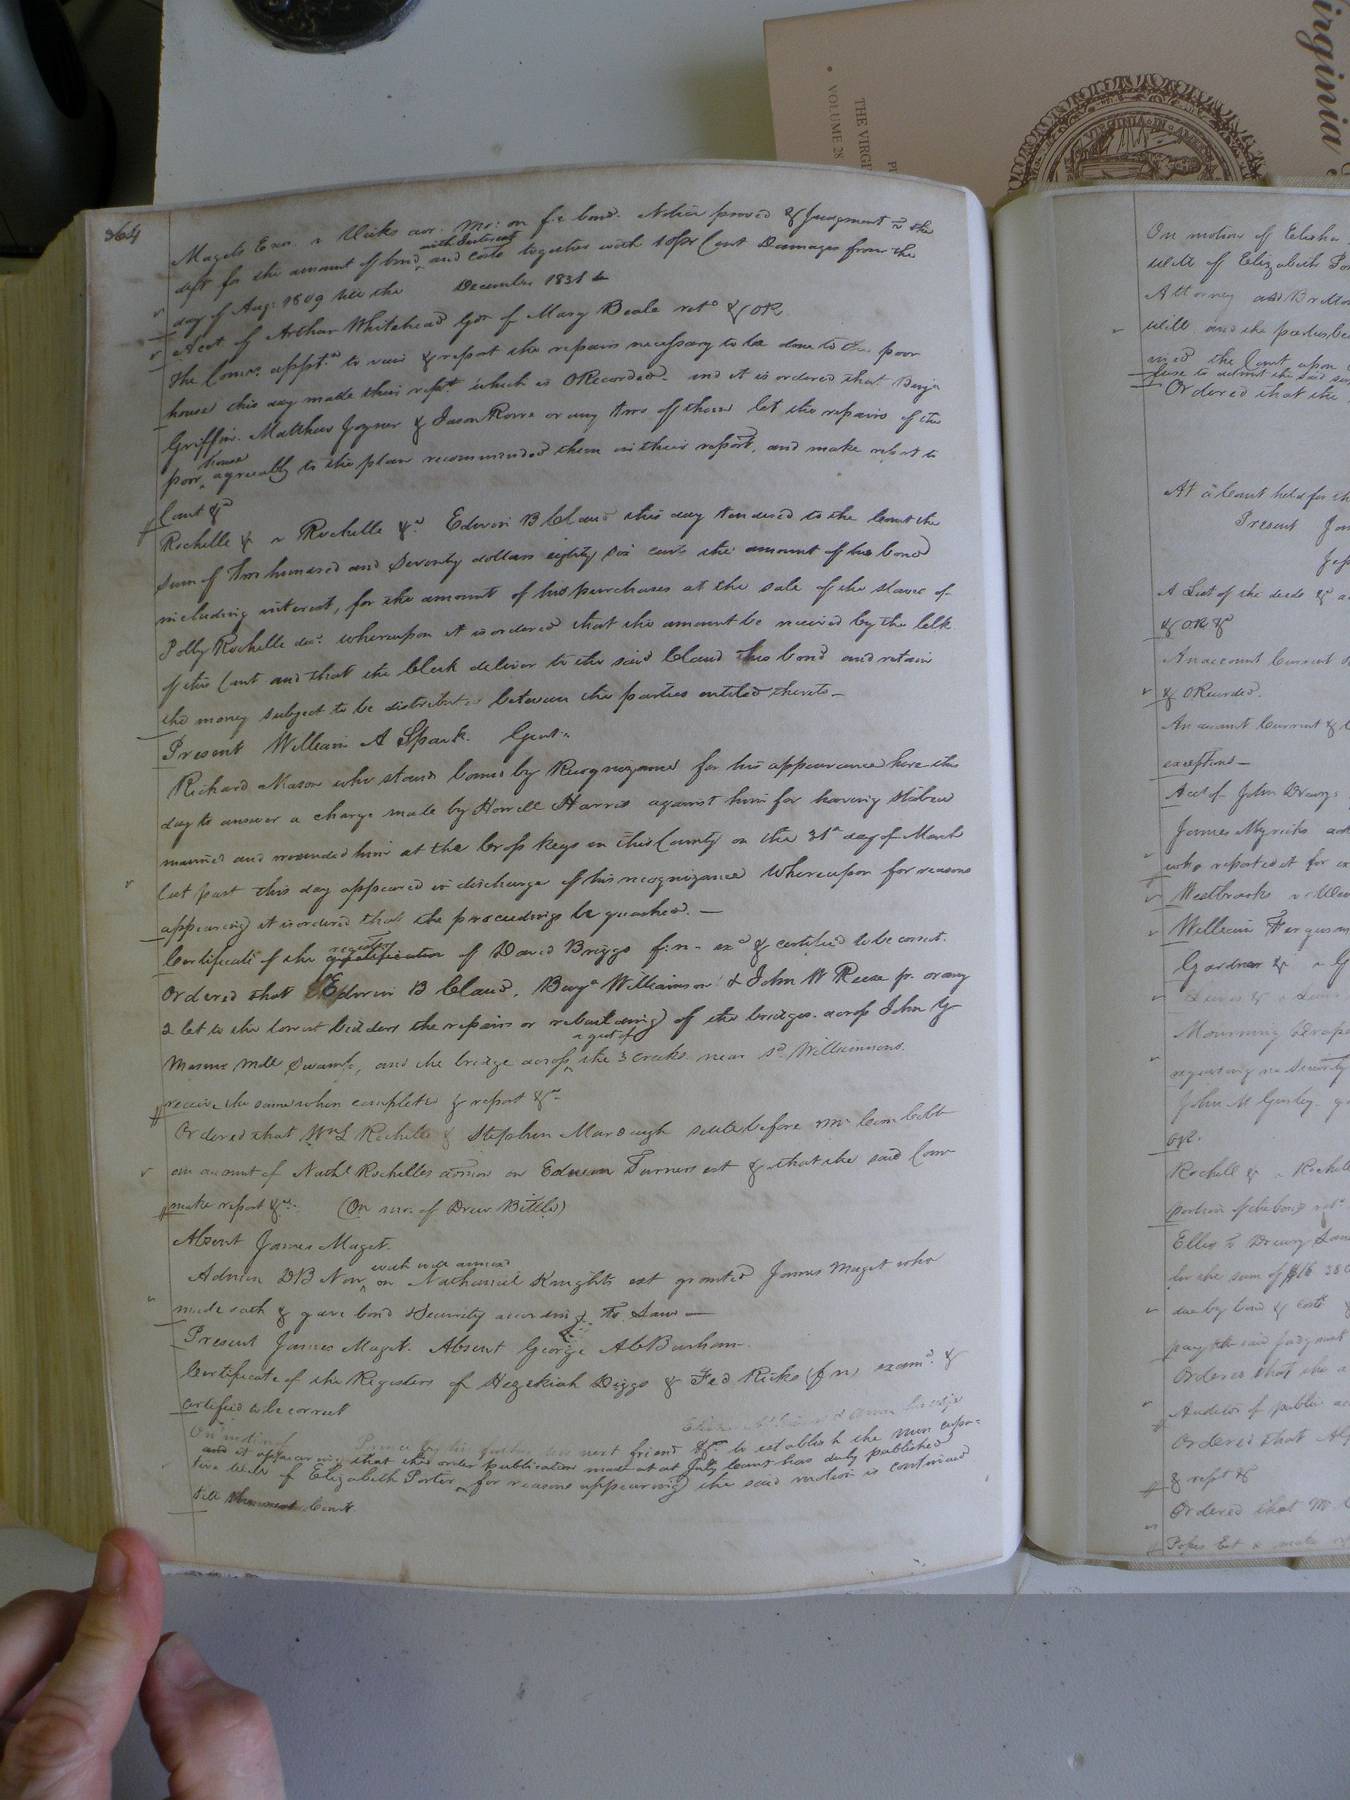 Virginia
THE VIRGI
VOLUME 28
VIRGINIA IN A
364
Magets Exor. v Ricks adr. Mo: on f.c bond. Notice proved & Judgment vs the
with Interest
deft for the amount of bond and costs together with 10 pr Cent Damages from the
day of Aug: 1809 till the December 1831 &
Acct of Arthur Whitehead Gdn of Mary Beale retd & OR
The Comrs. apptd to view & report the repairs necessary to be done to the poor
house this day made their rept which is ORecorded. and it is ordered that Benja
Griffin. Matthew Joyner & Jason Rowe or any two of them let the repairs of the
house
poor agreeably to the plan recommended them in their report, and make report to
Court &c
Rochelle & v Rochelle &c. Edwin B Claud this day tendered to the Court the
sum of two hundred and Seventy dollars eighty six cents the amount of his bond
including interest, for the amount of his purchases at the sale of the slaves of
Polly Rochelle decd. whereupon it is ordered that the amount be received by the Clk
of this Court and that the Clerk deliver to the said Claud his bond and retain
the money subject to be distributed between the parties entitled thereto —
Present William A Spark. Gent.
Richard Mason who stands bound by Recognizance for his appearance here this
day to answer a charge made by Howell Harris against him for having stabed
maimed and wounded him at the Cross keys in this County on the 31st day of March
last past this day appeared in discharge of his recognizance Whereupon for reasons
appearing it is ordered that the proceedings be quashed. —
register
Certificate of the qualification of David Briggs f:n - exd & certified to be correct.
Ordered that Edwin B Claud, Benja Williamson & John W Reese jr. or any
2 let to the lowest bidders the repairs or rebuilding of the bridges across John Y
Masons Mill Swamp, and the bridge across the 3 creeks near sd Williamsons.
receive the same when completed & report &c
Ordered that Wm L Rochelle & Stephen Marough settle before Mr Com Cobb
an account of Nathl Rochelles admon on Edwin Turners est & that the said Com
make report &c. (On mo. of Drew Bittle)
Absent James Maget.
with will annexed
Admon DB Non on Nathaniel Knights est granted James Maget who
made oath & gave bond & Security according To Law —
Present James Maget. Absent George A W Barham.
Certificate of the Registers of Hezekiah Diggs & Fed Ricks (f n) examd. &
certified to be correct
On motion of next friend &c. to establish the nuncupa-
and it appearing that the order publication made at at July Court has duly published
tive will of Elizabeth Porter for reasons appearing the said motion is continued
till Court
On motion of Elisha
will of Elizabeth Po
Attorney and Br
will and the
the Court upon
Ordered that the
At a Court held for th
Present Ja
A List of the deeds & a
& OR &c
An account Current
& ORecorded.
An account Current &
exceptions —
Acct of John Drewry
James Myricks
who reported it for ex
Westbrooks v
William Ferguson
Gardner & v G
Mourning
requiring no Security
John M Gurley
OR.
Rochell & v Rochell
Ellis v Drewry
for the sum of $16 38
due by bond & costs
pay the said Judgment
Ordered that the
Auditor of public ac
Ordered that
& rept &
Ordered that Mr
Popes Est & make